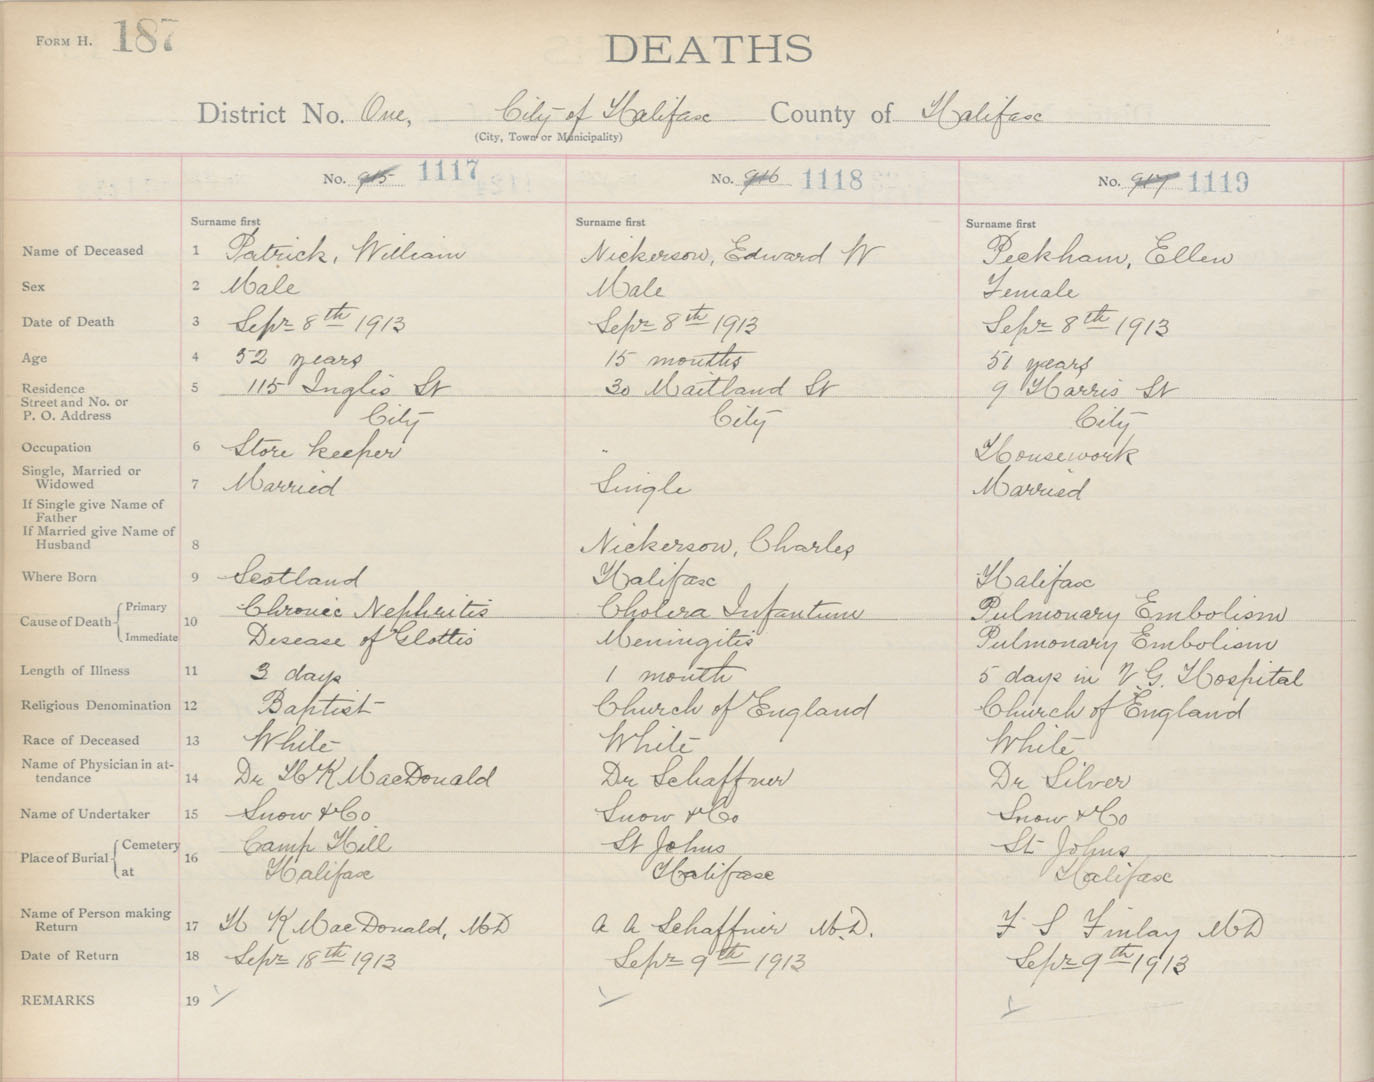 FORM H. 187
DEATHS
District No. One, City of Halifax County of Halifax
(City, Town or Municipality)
No. 915 1117 No. 916 1118 No. 917 1119
Surname first Surname first Surname first
Name of Deceased 1 Patrick, William Nickerson, Edward W Peckham, Ellen
Sex 2 Male Male Female
Date of Death 3 Sepr 8th 1913 Sepr 8th 1913 Sepr 8th 1913
Age 4 52 years 15 months 51 years
Residence 5 115 Inglis St 30 Maitland St 9 Harris St
Street and No. or
P. O. Address City City City
Occupation 6 Store keeper " Housework
Single, Married or
Widowed 7 Married Single Married
If Single give Name of
Father
If Married give Name of
Husband 8 Nickerson, Charles
Where Born 9 Scotland Halifax Halifax
Cause of Death Primary 10 Chronic Nephritis Cholera Infantum Pulmonary Embolism
Immediate Disease of Glottis Meningitis Pulmonary Embolism
Length of Illness 11 3 days 1 month 5 days in V. G. Hospital
Religious Denomination 12 Baptist Church of England Church of England
Race of Deceased 13 White White White
Name of Physician in at-
tendance 14 Dr H K MacDonald Dr Schaffner Dr Silver
Name of Undertaker 15 Snow & Co Snow & Co Snow & Co
Place of Burial Cemetery 16 Camp Hill St Johns St Johns
at Halifax Halifax Halifax
Name of Person making
Return 17 H K MacDonald, MD A A Schaffner M.D. F S Finlay MD
Date of Return 18 Sepr 18th 1913 Sepr 9th 1913 Sepr 9th 1913
REMARKS 19